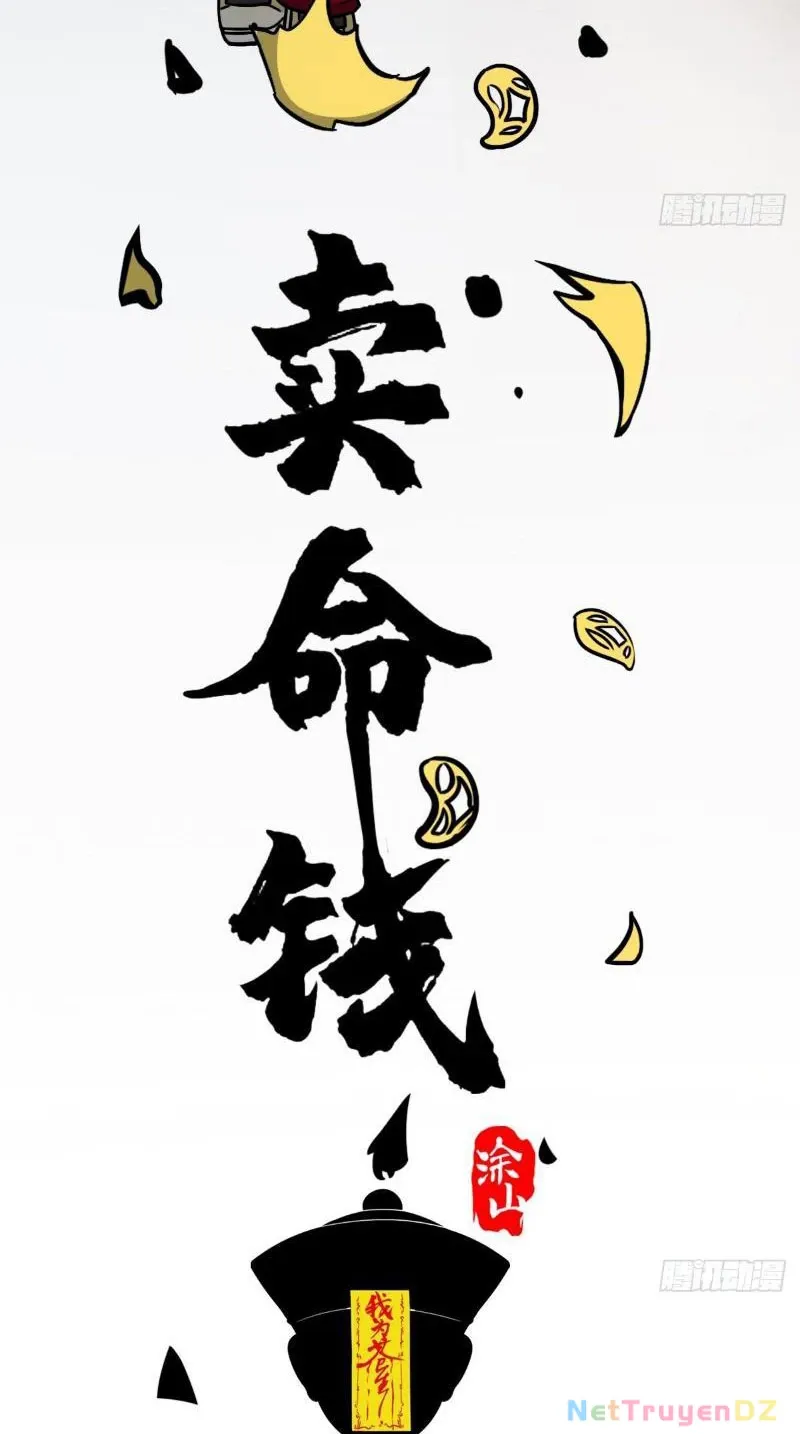 腾讯动漫
卖命钱
涂山
腾讯动漫
我为苍生
NetTruyenDZ